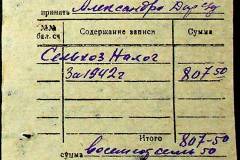 принять Александра
№№ бал. сч Содержание записи Сумма
Сельхоз Налог
За 1942 г 807 50
Итого 807-50
сумма восемьсот семь 50